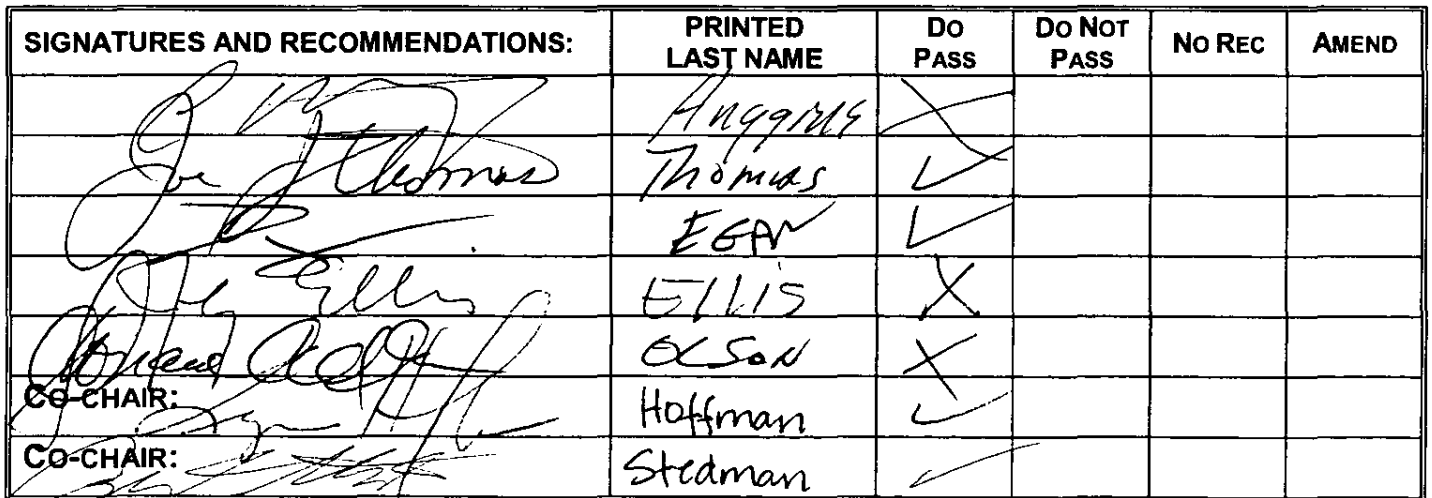 SIGNATURES AND RECOMMENDATIONS: PRINTED LAST NAME DO PASS DO NOT PASS NO REC AMEND
Joe J Thomas Thomas ✓
EGAN ✓
Ellis ELLIS X
Donald Olson OLSON X
CO-CHAIR: Hoffman ✓
CO-CHAIR: Stedman ✓